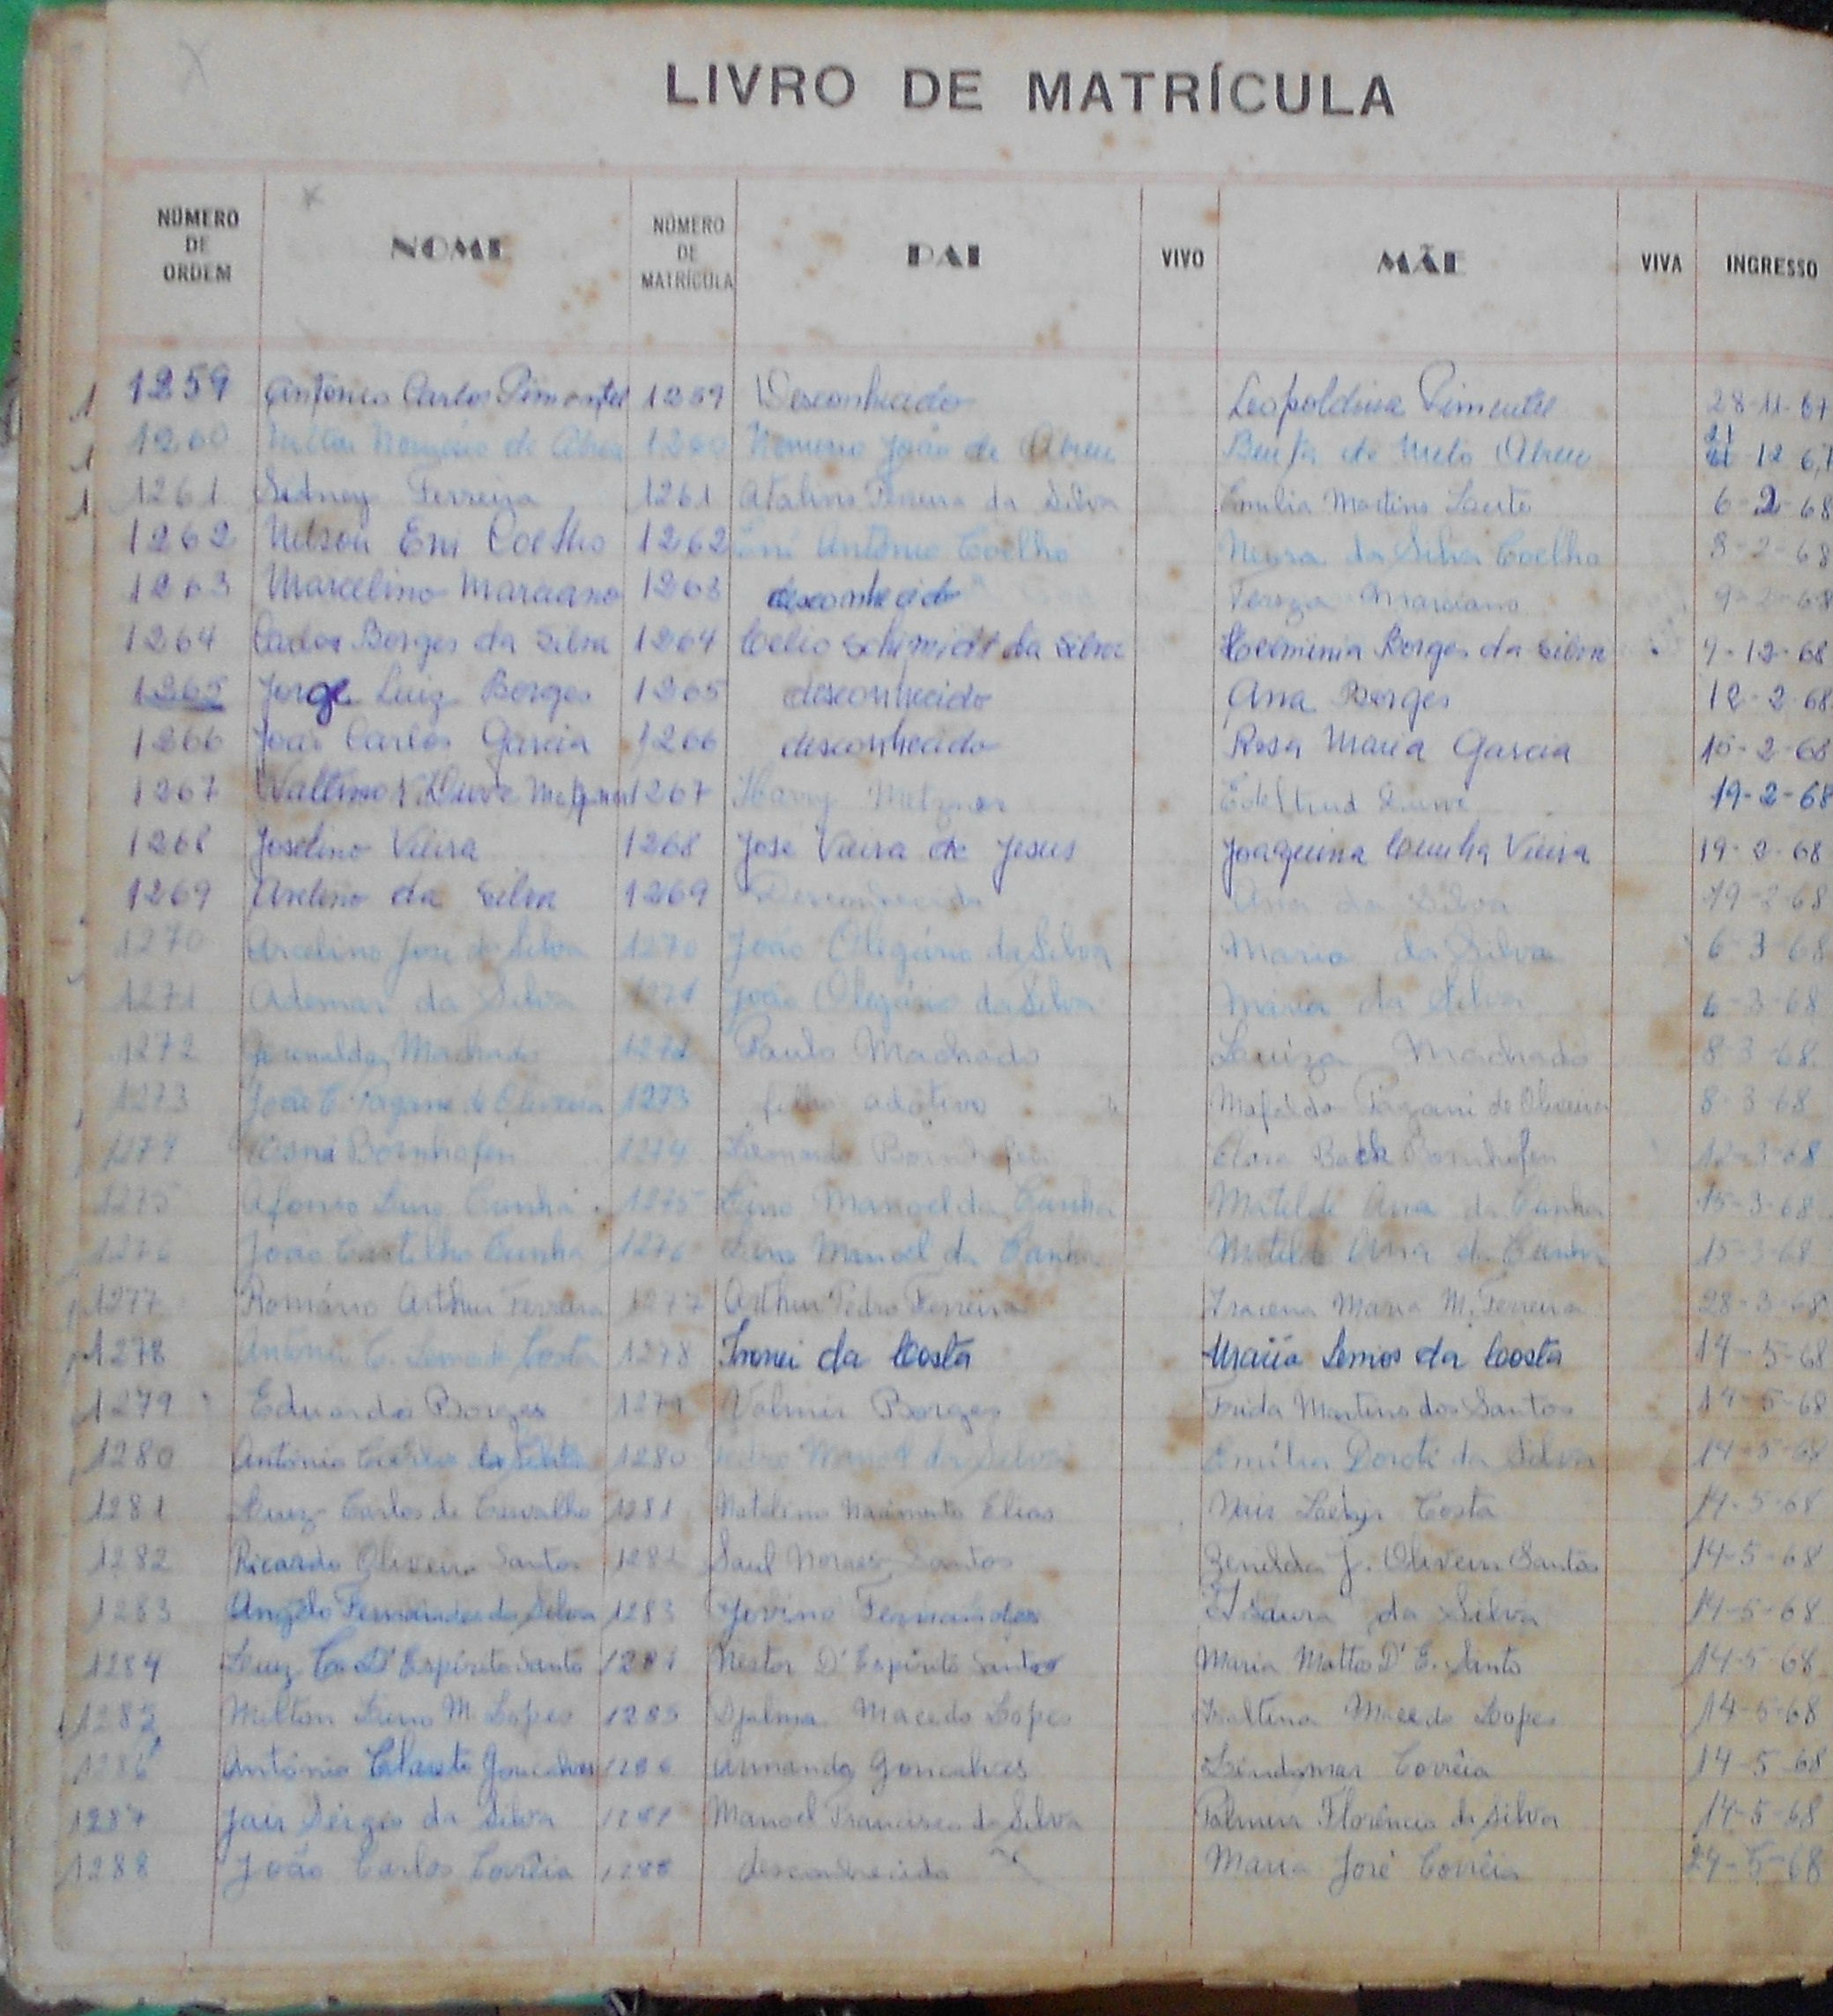 LIVRO DE MATRÍCULA
NÚMERO DE ORDEM NOME NÚMERO DE MATRÍCULA PAI VIVO MÃE VIVA INGRESSO
1259 Antônio Carlos Pimentel 1259 Desconhecido Leopoldina Pimentel 28-11-67
1260 de Abreu 1260 João de Abreu de Melo Abreu 12 67
1261 Sidney Ferreira 1261 Atalino Ferreira da Silva Emilia Martins 6-2-68
1262 Nilson Eni Coelho 1262 Eni Antônio Coelho da Silva Coelho 8-2-68
1263 Marcelino Marciano 1263 desconhecido Tereza Marciano 9-2-68
1264 Carlos Borges da Silva 1264 Celio Schimidt da Silva Borges da Silva 9-12-68
1265 Jorge Luiz Borges 1265 desconhecido Ana Borges 12-2-68
1266 João Carlos Garcia 1266 desconhecido Rosa Maria Garcia 15-2-68
1267 1267 Harry Metzner 19-2-68
1268 Joselino Vieira 1268 José Vieira de Jesus Joaquina Cunha Vieira 19-2-68
1269 Avelino da Silva 1269 Desconhecido Ana da Silva 19-2-68
1270 Arcelino José da Silva 1270 João Olegário da Silva Maria da Silva 6-3-68
1271 Ademar da Silva 1271 João Olegário da Silva Maria da Silva 6-3-68
1272 Machado 1272 Paulo Machado Luiza Machado 8-3-68
1273 João C. Pagani de Oliveira 1273 filho adotivo Mafalda Pagani de Oliveira 8-3-68
1274 Bornhofen 1274 Leonardo Bornhofen Back Bornhofen 12-3-68
1275 Afonso Luiz Cunha 1275 Lino Manoel da Cunha Matilde Ana da Cunha 15-3-68
1276 João Castilho Cunha 1276 Lino Manoel da Cunha Matilde Ana da Cunha 15-3-68
1277 Romário Arthur Ferreira 1277 Arthur Pedro Ferreira Iracema Maria M. Ferreira 28-3-68
1278 Antonio C. Lemos da Costa 1278 da Costa Maria Lemos da Costa 14-5-68
1279 Eduardo Borges 1279 Valmir Borges Frida Martins dos Santos 14-5-68
1280 Antônio Carlos da Silva 1280 Pedro Manoel da Silva Emília Doroti da Silva 14-5-68
1281 Luiz Carlos de Carvalho 1281 Natalino Nascimento Elias Costa 14-5-68
1282 Ricardo Oliveira Santos 1282 Saul Moraes Santos Zenilda J. Oliveira Santos 14-5-68
1283 Angelo Fernandes da Silva 1283 Jovino Fernandes Isaura da Silva 14-5-68
1284 Luiz D'Espírito Santo 1284 Nestor D'Espírito Santo Maria Mattos D' E. Santo 14-5-68
1285 Milton Lino M. Lopes 1285 Djalma Macedo Lopes Macedo Lopes 14-5-68
1286 Antônio Clareto Goncalves 1286 Armando Goncalves Lindomar Corrêia 14-5-68
1287 Jair Sérgio da Silva 1287 Manoel Francisco da Silva Palmira Florêncio da Silva 14-5-68
1288 João Carlos Corrêia 1288 desconhecido Maria José Corrêia 24-5-68